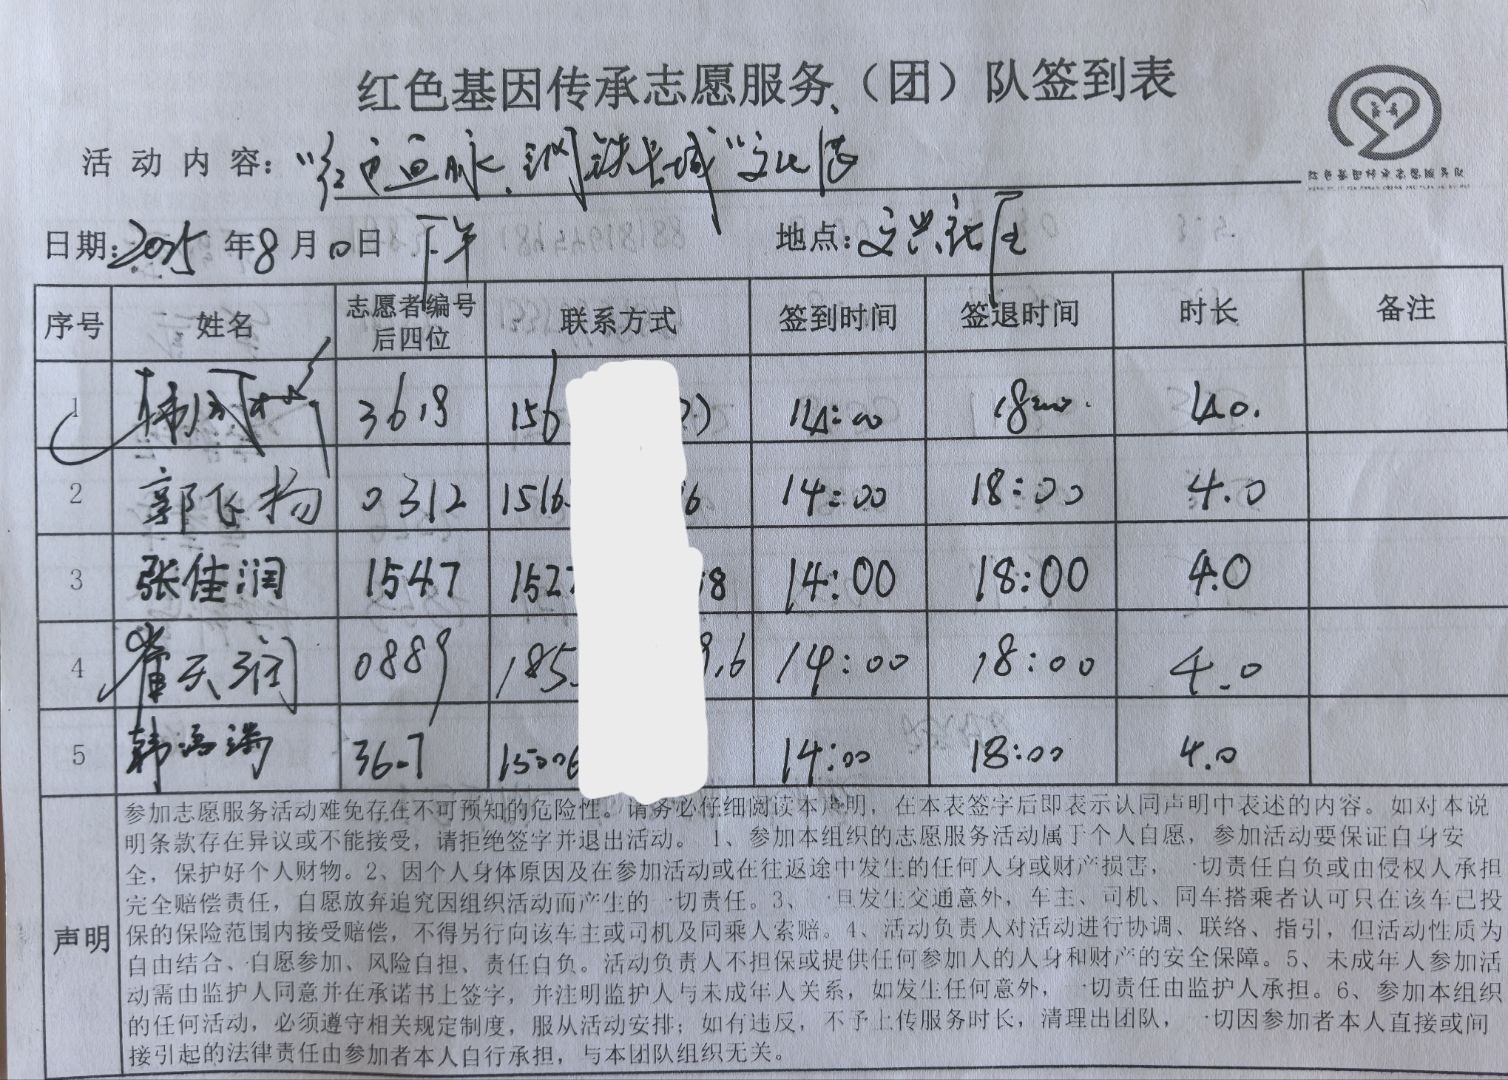 红色基因传承志愿服务（团）队签到表
红色基因传承志愿服务队
活动内容："红色血脉、钢铁长城"文化
日期:2025年8月10日 下午 地点:文兴社区
序号 姓名 志愿者编号后四位 联系方式 签到时间 签退时间 时长 备注
1 3619 156 14:00 18:00 4.0
2 郭飞扬 0312 1516 6 14:00 18:00 4.0
3 张佳润 1547 152 8 14:00 18:00 4.0
4 天润 0889 185 6 14:00 18:00 4.0
5 韩 3607 15006 14:00 18:00 4.0
声明
参加志愿服务活动难免存在不可预知的危险性。请务必仔细阅读本声明，在本表签字后即表示认同声明中表述的内容。如对本说
明条款存在异议或不能接受，请拒绝签字并退出活动。1、参加本组织的志愿服务活动属于个人自愿，参加活动要保证自身安
全，保护好个人财物。2、因个人身体原因及在参加活动或在往返途中发生的任何人身或财产损害，一切责任自负或由侵权人承担
完全赔偿责任，自愿放弃追究因组织活动而产生的一切责任。3、一旦发生交通意外，车主、司机、同车搭乘者认可只在该车已投
保的保险范围内接受赔偿，不得另行向该车主或司机及同乘人索赔。4、活动负责人对活动进行协调、联络、指引，但活动性质为
自由结合、自愿参加、风险自担、责任自负。活动负责人不担保或提供任何参加人的人身和财产的安全保障。5、未成年人参加活
动需由监护人同意并在承诺书上签字，并注明监护人与未成年人关系，如发生任何意外，一切责任由监护人承担。6、参加本组织
的任何活动，必须遵守相关规定制度，服从活动安排；如有违反，不予上传服务时长，清理出团队，一切因参加者本人直接或间
接引起的法律责任由参加者本人自行承担，与本团队组织无关。